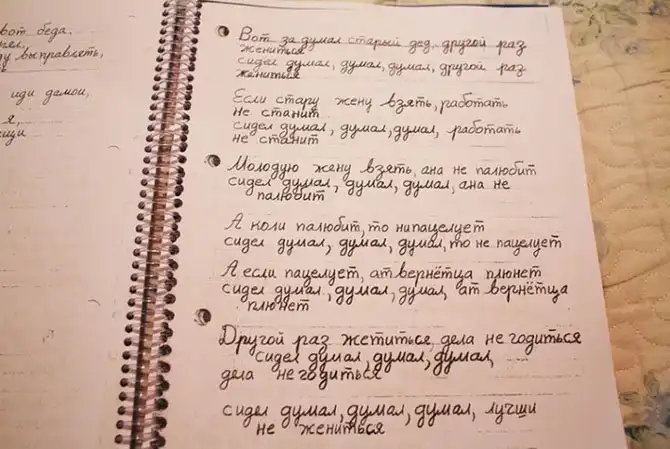 вот беда,
ду выправлеть,
иди дамой,
я,
Вот за думал старый дед, другой раз
жениться
сидел думал, думал, думал, другой раз
жениться
Если стару жену взять, работать
не станит
сидел думал, думал, думал, работать
не станит
Молодую жену взять, ана не палюбит
сидел думал, думал, думал, ана не
палюбит
А коли палюбит, то нипацелует
сидел думал, думал, думал, то не пацелует
А если пацелует, ат вернётца плюнет
сидел думал, думал, думал, ат вернётца
плюнет
Другой раз жетиться, дела не годиться
сидел думал, думал, думал,
дела не годиться
сидел думал, думал, думал, лучши
не жениться